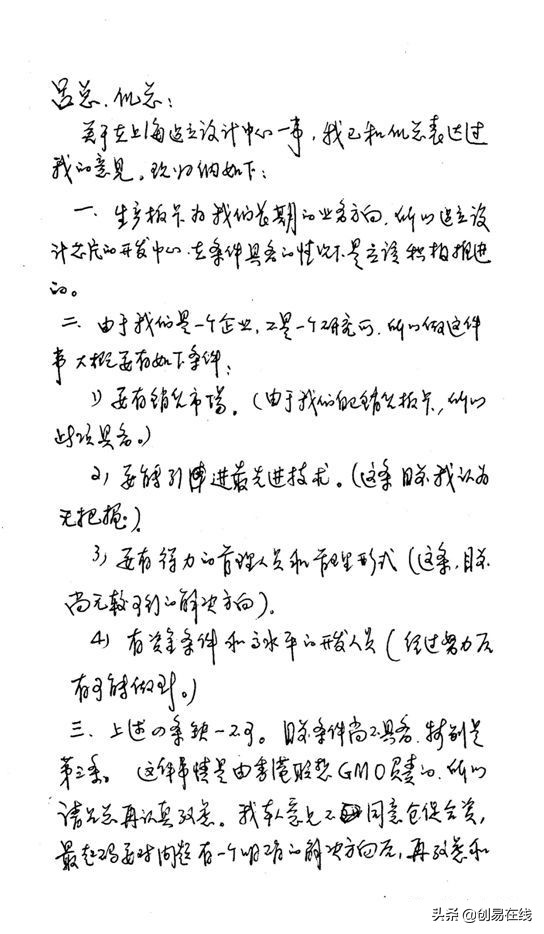 吕总、倪总：
关于在上海建立设计中心一事，我已和倪总表达过
我的意见。现归纳如下：
一、生产板卡为我们长期的业务方向，所以建立设
计芯片的开发中心，在条件具备的情况下是应该积极推进
的。
二、由于我们是一个企业，不是一个研究所，所以做这件
事大概要有如下条件：
1）要有销售市场。（由于我们能销售板卡，所以
此项具备。）
2）要能引进最先进技术。（这条目前我认为
无把握。）
3）要有得力的管理人员和管理形式（这条，目前
尚无较可行的解决方向）。
4）有资金条件和高水平的开发人员（经过努力后
有可能做到。）
三、上述四条缺一不可。目前条件尚不具备，特别是
第三条。这件事情是由香港联想GMO负责的，所以
请吕总再认真考虑。我本人意见不同意仓促合资，
最起码要对问题有一个明确的解决方向后，再考虑和
头条 @创易在线